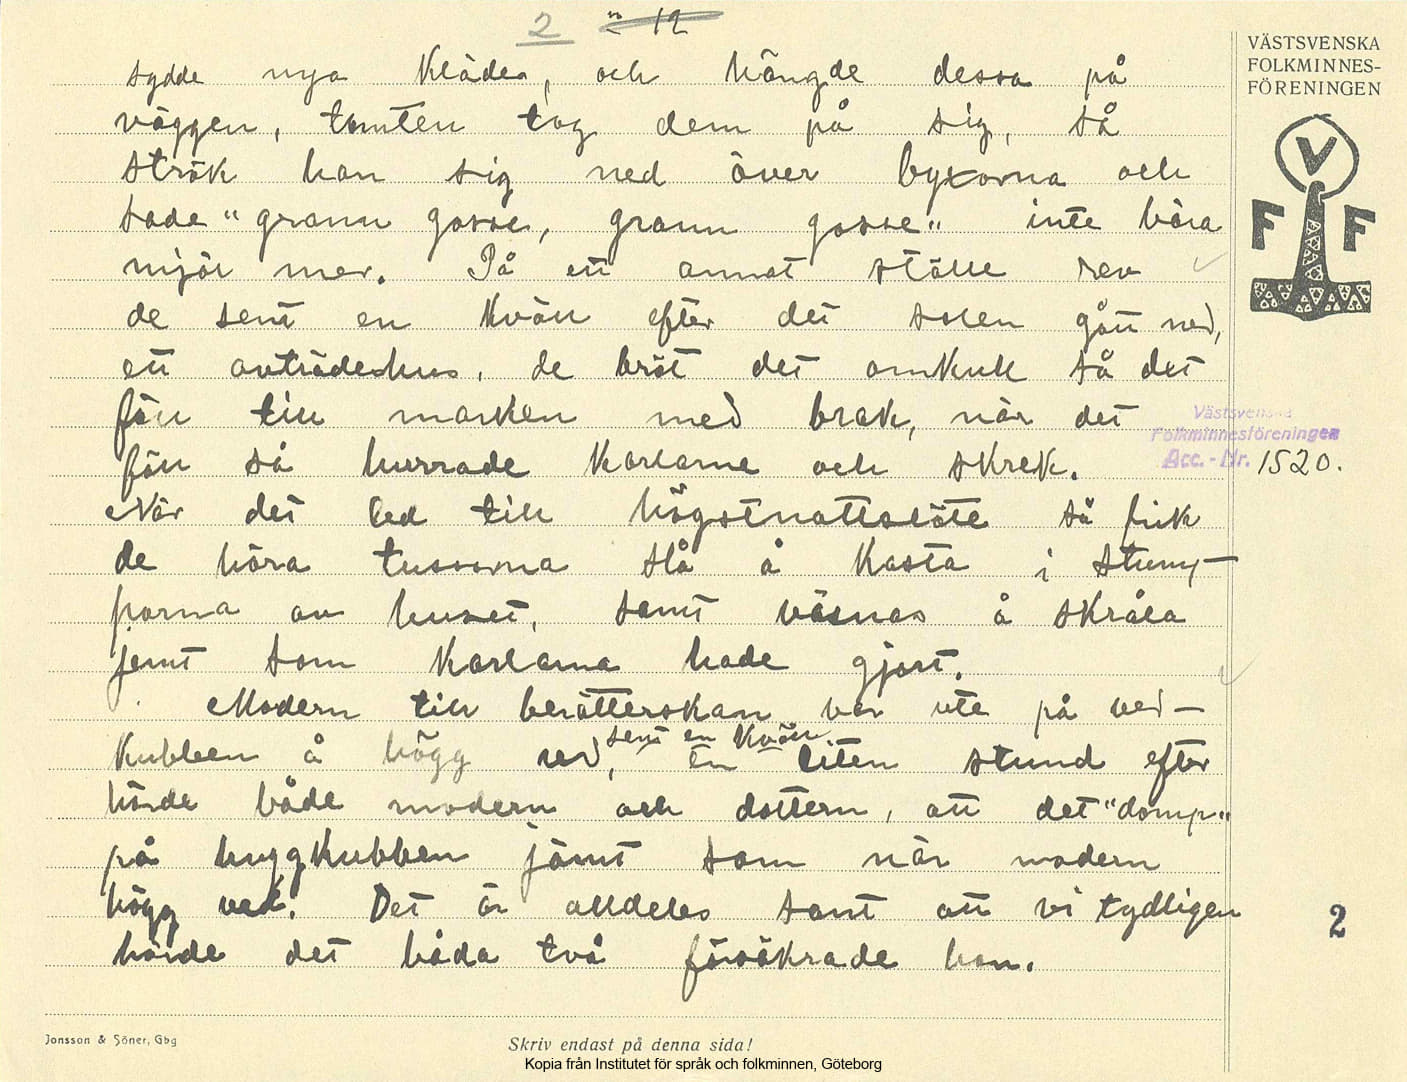 2 12
VÄSTSVENSKA
FOLKMINNES-
FÖRENINGEN
V
F F
sydde nya kläder, och hängde dessa på
väggen, tomten tog dem på sig, så
strök han sig ned över byxorna och
sade "grann gosse, grann gosse" inte bära
mjöl mer. På ett annat ställe rev
de sent en kväll efter det solen gått ned,
ett avträdeshus, de bröt det omkull så det
föll till marken med brak, när det
föll så hurrade karlarne och skrek.
När det led till högstnattslöte så fick
de höra tussarna slå å kasta i stum-
parna av huset, samt väsnas å skråla
jemt som karlarna hade gjort.
Modern till berätterskan var ute på ved-
kubben å högg ved, sent en kväll. en liten stund efter
hörde både modern och dottern, att det "domp"
på huggkubben jämt som när modern
högg ved. Det är alldeles sant att vi tydligen
hörde det båda två försäkrade hon.
Västsvenska
Folkminnesföreningen
Acc. - Nr. 1520.
2
Jonsson & Söner, Gbg
Skriv endast på denna sida!
Kopia från Institutet för språk och folkminnen, Göteborg